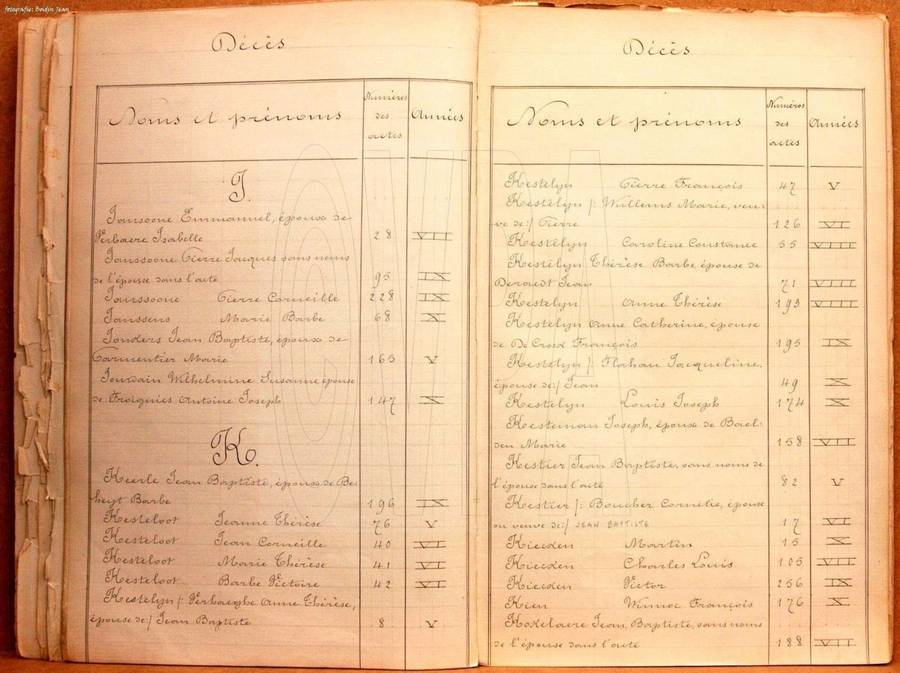 fotografie: Boidin Jean
Décès
Noms et prénoms
Numéros
des
actes
Années
J.
Janssone Emmanuel, épouse de
Verbaere Isabelle 28 VII
Janssoone Pierre Jacques sans noms
de l'épouse dans l'acte 95 IX
Janssoone Pierre Corneille 228 IX
Janssens Marie Barbe 68 X
Jonders Jean Baptiste, épouse de
Carmentier Marie 165 V
Jourdain Wilhelmine Susanne épouse
de Froignies Antoine Joseph 147 X
K.
Keerle Jean Baptiste, épouse de Be-
heyt Barbe 196 IX
Kesteloot Jeanne Thérèse 76 V
Kesteloot Jean Corneille 40 VI
Kesteloot Marie Thérèse 41 VI
Kesteloot Barbe Victoire 42 VI
Kestelyn /: Verhaeghe Anne Thérèse,
épouse de :/ Jean Baptiste 8 V
Décès
Noms et prénoms
Numéros
des
actes
Années
Kestelyn Pierre François 47 V
Kestelyn /: Wullems Marie, veu-
ve de :/ Pierre 126 VI
Kestelyn Caroline Constance 55 VIII
Kestelyn Thérèse Barbe épouse de
Deraedt Jean 71 VIII
Kestelyn Anne Thérèse 193 VIII
Kestelyn Anne Catherine, épouse
de De Croix François 195 IX
Kestelyn /: Flahau Jacqueline,
épouse de :/ Jean 49 X
Kestelyn Louis Joseph 174 X
Kesteman Joseph, épouse de Bael-
den Marie 158 VII
Kestier Jean Baptiste, sans noms de
l'épouse dans l'acte 82 V
Kestier /: Boucher Cornelie, épouse
ou veuve de :/ JEAN BAPTISTE 17 VI
Kiecken Martin 15 X
Kiecken Charles Louis 105 VII
Kiecken Victor 256 IX
Kien Winnoc François 176 X
Kokelaere Jean, Baptiste, sans noms
de l'épouse dans l'acte 188 VII